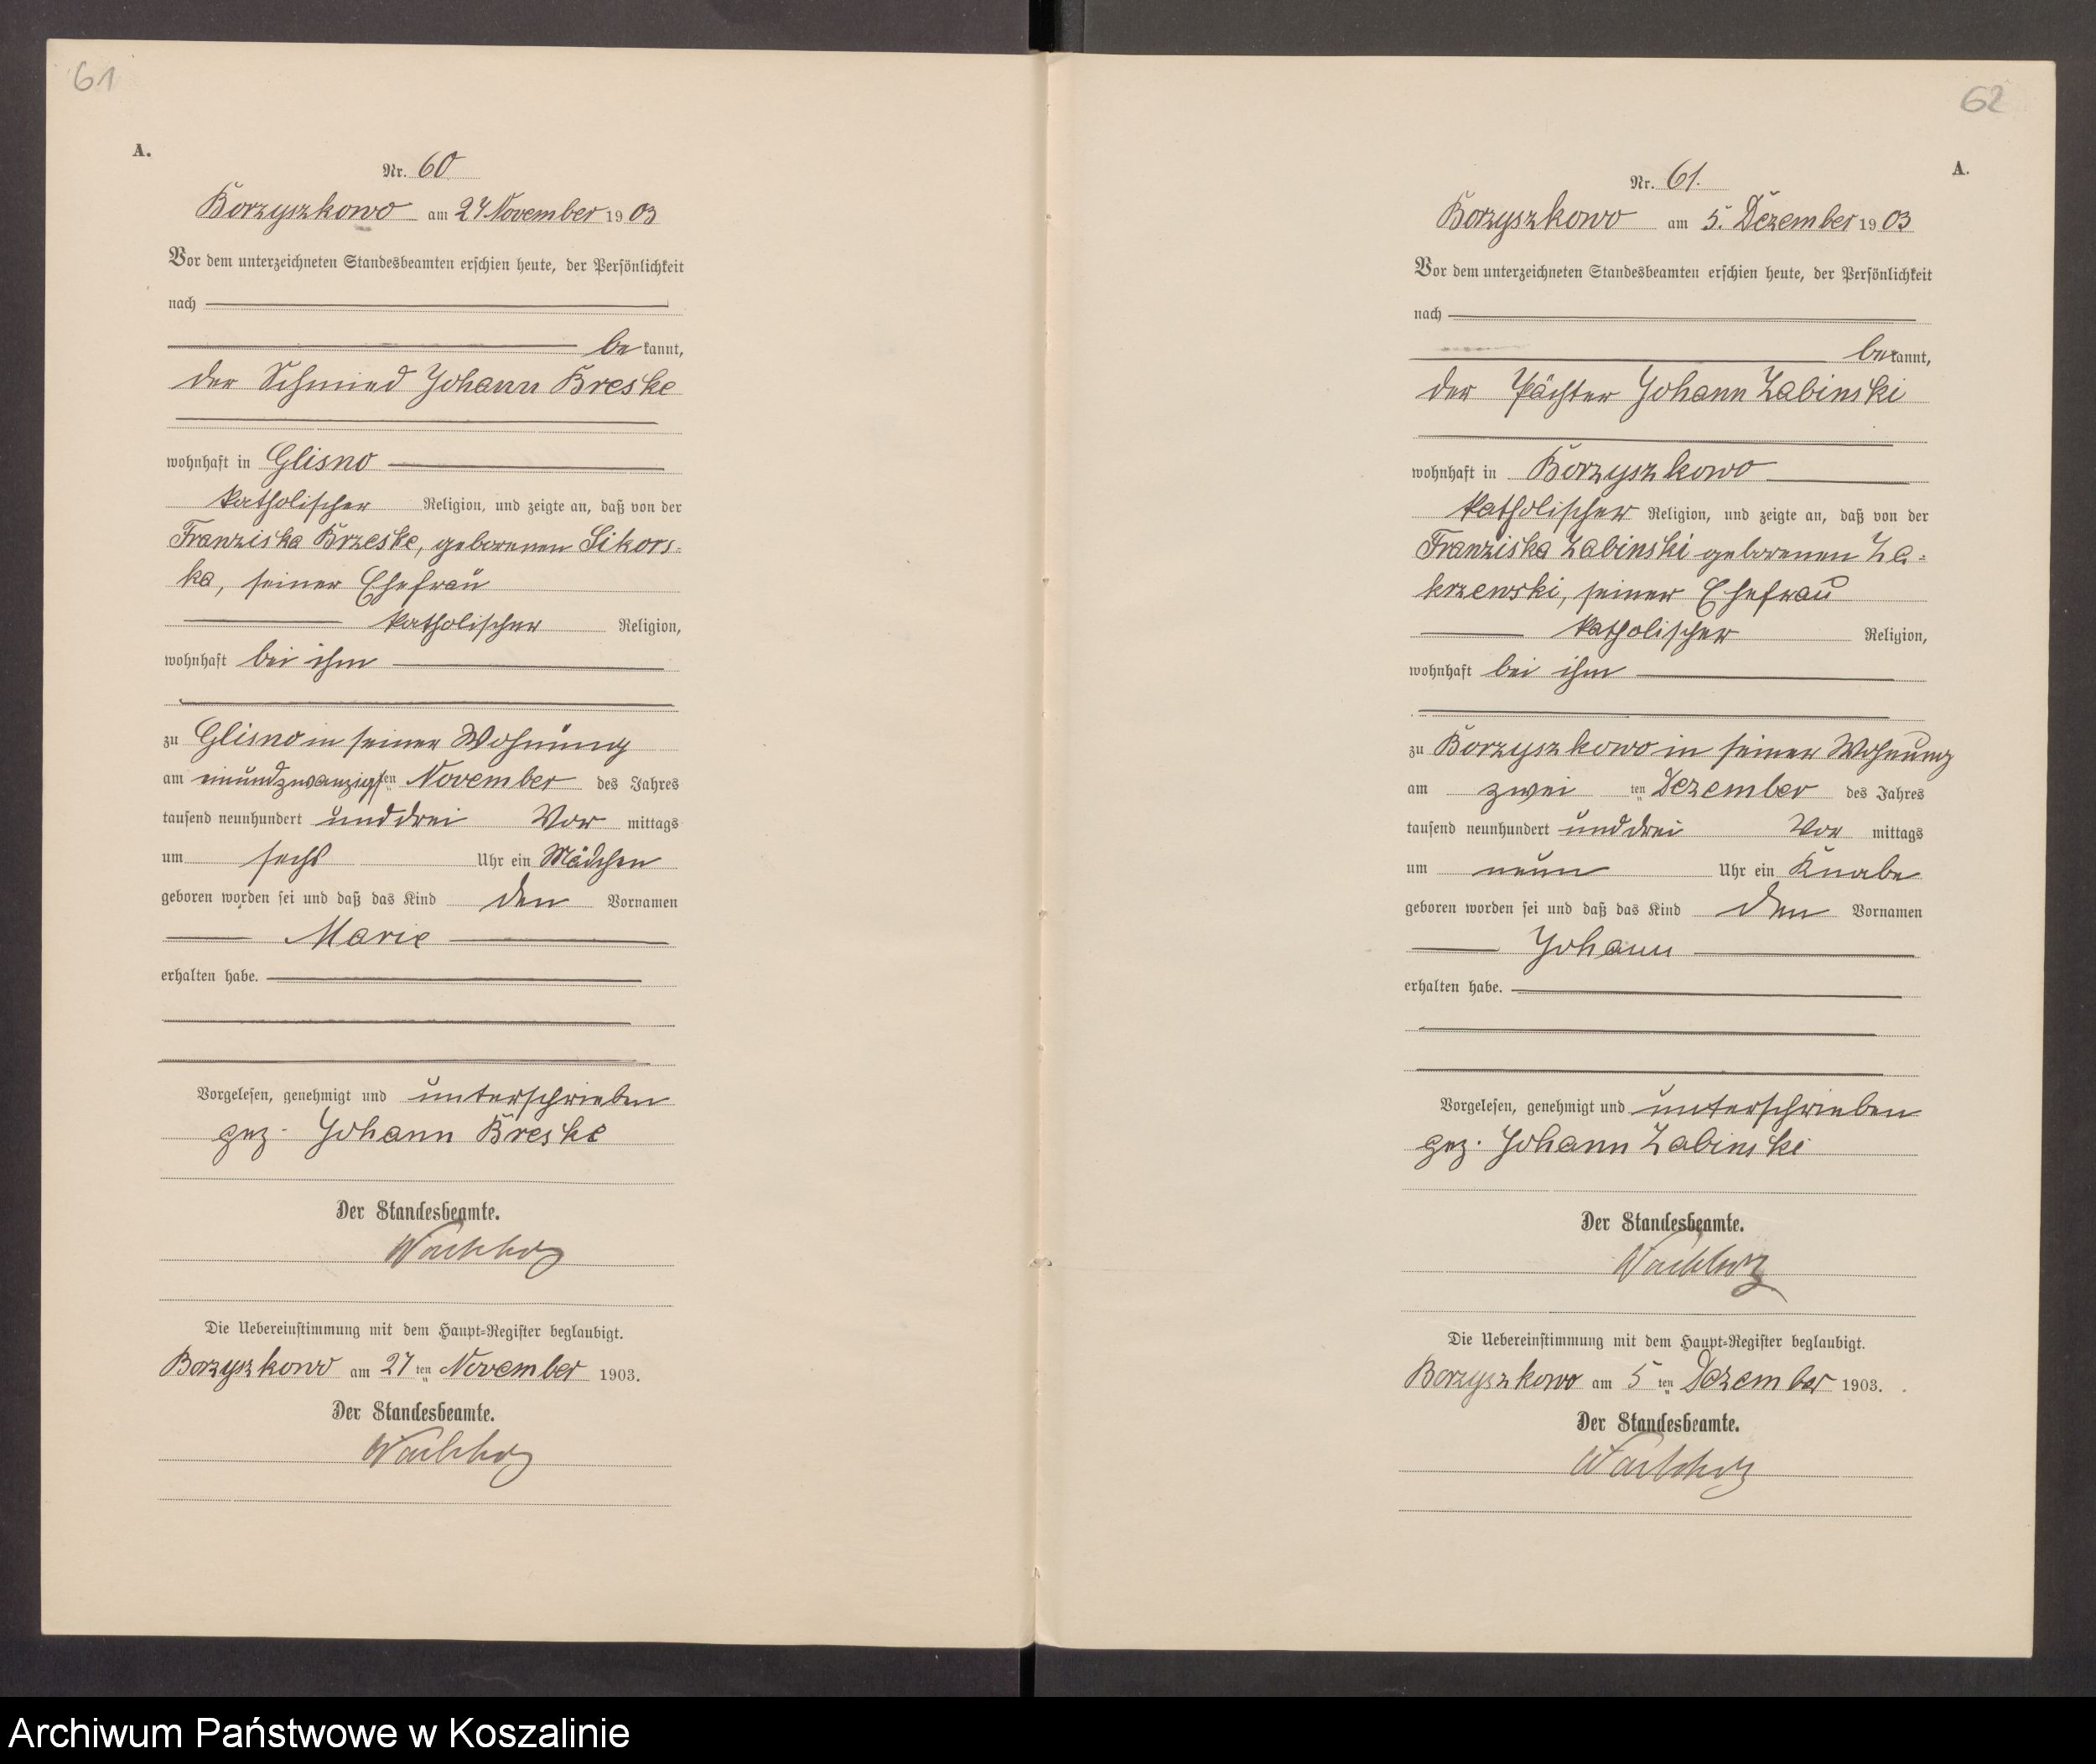 61
A.
Nr. 60
Borzyszkowo am 27 November 1903
Vor dem unterzeichneten Standesbeamten erschien heute, der Persönlichkeit
nach
bekannt,
der Schmied Johann Breske
wohnhaft in Glisno
katholischer Religion, und zeigte an, daß von der
Franziska Brzeske, geborenen Sikors-
ka, seiner Ehefrau
katholischer Religion,
wohnhaft bei ihm
zu Glisno in seiner Wohnung
am einundzwanzigsten November des Jahres
tausend neunhundert und drei Vor mittags
um sechs Uhr ein Mädchen
geboren worden sei und daß das Kind den Vornamen
Marie
erhalten habe.
Vorgelesen, genehmigt und unterschrieben
gez. Johann Breske
Der Standesbeamte.
Die Uebereinstimmung mit dem Haupt-Register beglaubigt.
Borzyszkowo am 27ten November 1903.
Der Standesbeamte.
62
A.
Nr. 61.
Borzyszkowo am 5. Dezember 1903
Vor dem unterzeichneten Standesbeamten erschien heute, der Persönlichkeit
nach
bekannt,
der Pächter Johann Zabinski
wohnhaft in Borzyszkowo
katholischer Religion, und zeigte an, daß von der
Franziska Zabinski geborenen Za-
krzewski, seiner Ehefrau
katholischer Religion,
wohnhaft bei ihm
zu Borzyszkowo in seiner Wohnung
am zwei ten Dezember des Jahres
tausend neunhundert und drei Vor mittags
um neun Uhr ein Knabe
geboren worden sei und daß das Kind den Vornamen
Johann
erhalten habe.
Vorgelesen, genehmigt und unterschrieben
gez. Johann Zabinski
Der Standesbeamte.
Die Uebereinstimmung mit dem Haupt-Register beglaubigt.
Borzyszkowo am 5ten Dezember 1903.
Der Standesbeamte.
Archiwum Państwowe w Koszalinie